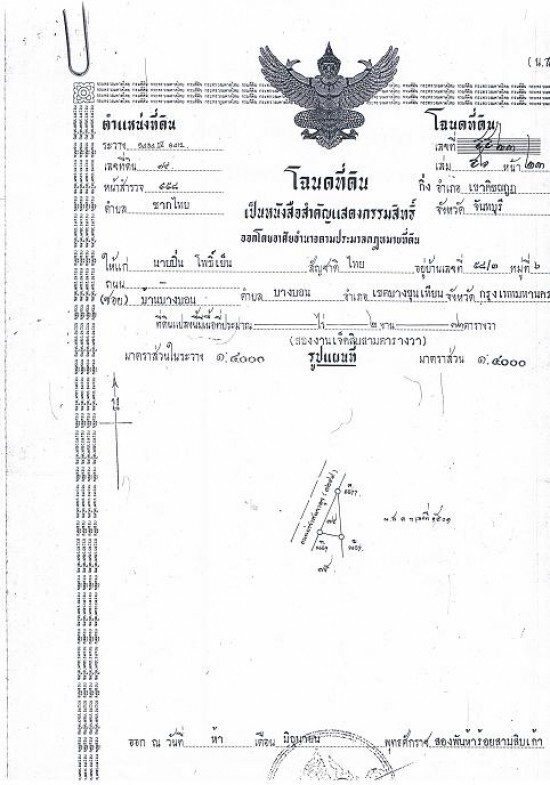 (น.ส.
ตำแหน่งที่ดิน
โฉนดที่ดิน
ระวาง
เลขที่
เลขที่ดิน ๗๕
เล่ม ๕๑ หน้า ๒๓
หน้าสำรวจ ๕๕๘
โฉนดที่ดิน
กิ่ง อำเภอ เขาคิชฌกูฏ
ตำบล ชากไทย
เป็นหนังสือสำคัญแสดงกรรมสิทธิ์
จังหวัด จันทบุรี
ออกโดยอาศัยอำนาจตามประมวลกฎหมายที่ดิน
ให้แก่ นายปิ่น โพธิ์เย็น สัญชาติ ไทย อยู่บ้านเลขที่ ๕๘/๓ หมู่ที่ ๖
ถนน
(ซอย) บ้านบางบอน ตำบล บางบอน อำเภอ เขตบางขุนเทียน จังหวัด กรุงเทพมหานคร
ที่ดินแปลงนี้มีเนื้อที่ประมาณ - ไร่ ๒ งาน ๗๓ ตารางวา
(สองงานเจ็ดสิบสามตารางวา)
มาตราส่วนในระวาง ๑:๔๐๐๐ รูปแผนที่ มาตราส่วน ๑:๔๐๐๐
น
๗๕
ออก ณ วันที่ ห้า เดือน มิถุนายน พุทธศักราช สองพันห้าร้อยสามสิบเก้า